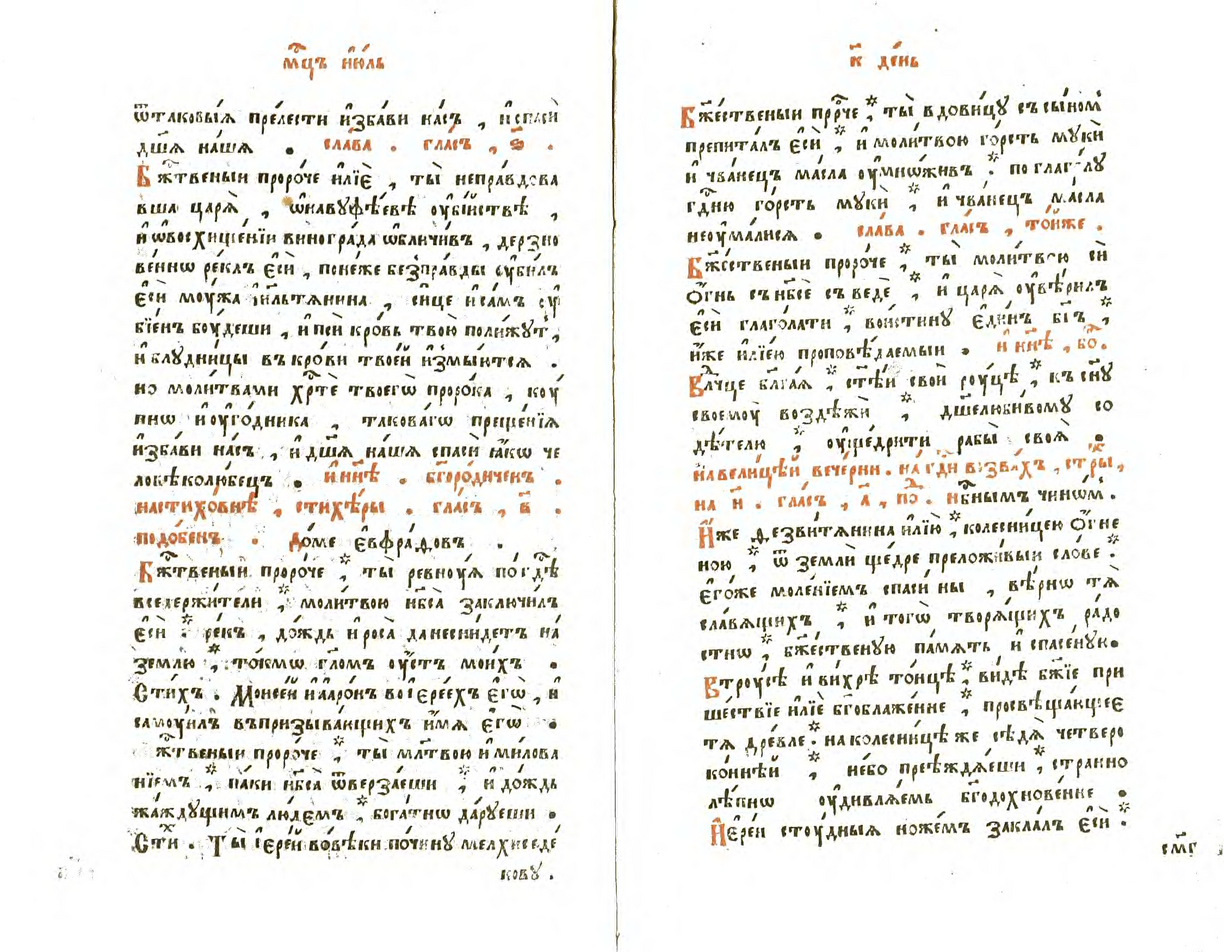 мц҃ъ ію́ль
ѿтаковы́ѧ пре́лести и҆зба́ви на́съ , и҆спаси
дш҃ѧ на́шѧ . сла́ва . гла́съ , ѕ҃ .
Бж҃твеныи проро́че илїѐ , ты̀ непра́вдова
вша царѧ̀ , ѡ҆навуфѣ́евѣ оу҆бі́йствѣ ,
и҆ ѡ҆восхище́нїи виногра́да ѡ҆бличи́въ , дерзно
ве́ннѡ ре́клъ є҆сѝ , поне́же без̾пра́вды оу҆би́лъ
є҆сѝ моу́жа і҆ильтѧ́нина , си́це и҆са́мъ оу҆
бїе́нъ боу́деши , и҆пси̑ кро́вь твою̀ поли́жутъ ,
и҆ блудни́цы въ кро́ви твое́й и҆змы́ютсѧ .
но моли́твами хр҇тѐ твоегѡ̀ проро́ка , коу́
пнѡ и҆оуго́дника , такова́гѡ преще́нїѧ
и҆зба́ви на́съ , и҆ дш҃ѧ на́шѧ спасѝ ꙗ҆́кѡ че
ловѣколю́бецъ . и҆ ны́нѣ . бг҃оро́диченъ .
настихо́внѣ , стихѣ́ры . гла́съ , в҃ .
подо́бенъ . до́ме є҆вфра́довъ .
Бж҃твеныи проро́че * ты̀ ревну́ѧ по гд҇ѣ
вседержи́тели , * моли́твою нб҃са̀ заключи́лъ
є҆сѝ * ре́къ , до́ждь и҆ роса̀ данесни́детъ на́
зе́млю , * то́кмѡ гл҃омъ оу҆́стъ мои́хъ .
Сти́хъ . Моисе́й и҆ а҆аро́нъ во і҆ере́ехъ є҆гѡ̀ , и҆
самоуи́лъ въ призыва́ющихъ и҆́мѧ є҆гѡ̀ .
ж҃твеныи проро́че , * ты̀ мл҃твою и҆ми́лова
нїемъ , * па́ки нб҃са̀ ѿверза́еши , * и҆ до́ждь
жа́ждущимъ лю́демъ , * бога́тнѡ да́руеши .
Сти́х . Ты̀ і҆ере́й вовѣ́ки почи́ну мелхиседе́
кову .
к҃ де́нь
Бж҃е́ственыи прр҇че * ты̀ вдови́цу съ сы́номъ
препита́лъ є҆сѝ , * и҆ моли́твою го́рсть мукѝ
и҆ чва́нецъ ма́сла оу҆мно́живъ * по глаго́лу
гд҇ню го́рсть мукѝ , * и҆ чва́нецъ ма́сла
неоума́лисѧ . сла́ва . гла́съ , то́йже .
Бж҃е́ственыи проро́че * ты̀ моли́твою сѝ
о҆́гнь съ нб҃сѐ съ ведѐ , * и҆ царѧ̀ оу҆вѣ́рилъ
є҆сѝ глаго́лати , * вои́стину є҆ди́нъ бг҃ъ , *
и҆́же илїе́ю проповѣ́даемыи . и҆ ны́нѣ , бо҃ .
Влч҇це блг҃а́ѧ , * ст҃ѣ́и свои̑ ро́уцѣ , * къ сн҃у
своему̀ воздѣ́жи , * дш҃елюби́вому со
дѣ́телю , * оу҆ще́дрити рабы̀ своѧ̑ .
на вели́цѣй вече́рни . на гд҇и возва́хъ , ст҇ры ,
на и҃ . гла́съ , а҃ , по҇ . нб҇нымъ чино́мъ .
И҆́же ѳезвитѧ́нина илїю̀ , * колесни́цею о҆́гне
ною , * ѿ земли̑ ще́дре преложи́выи сло́ве . *
є҆го́же моле́нїемъ спаси ны , вѣ́рнѡ тѧ̀
сла́вѧщихъ , * и҆ тогѡ̀ творѧ́щихъ ра́до
стнѡ , * бж҃е́ственую па́мѧть и҆ спасе́ную .
В троусѣ и҆ ви́хрѣ то́нцѣ , * ви́дѣ бж҃їе при
ше́ствїе илїе бг҃облаже́нне , * просвѣща́ющее
тѧ дре́вле * на колесни́цѣ же сѣдѧ̀ четверо
ко́ннѣй , * не́бо преѣжда́еши , * стра́нно
лѣ́пнѡ оу҆дивлѧ́емь бг҃одохнове́нне .
И҆ере́и сту́дныѧ ноже́мъ закла́лъ є҆сѝ *
смг҃